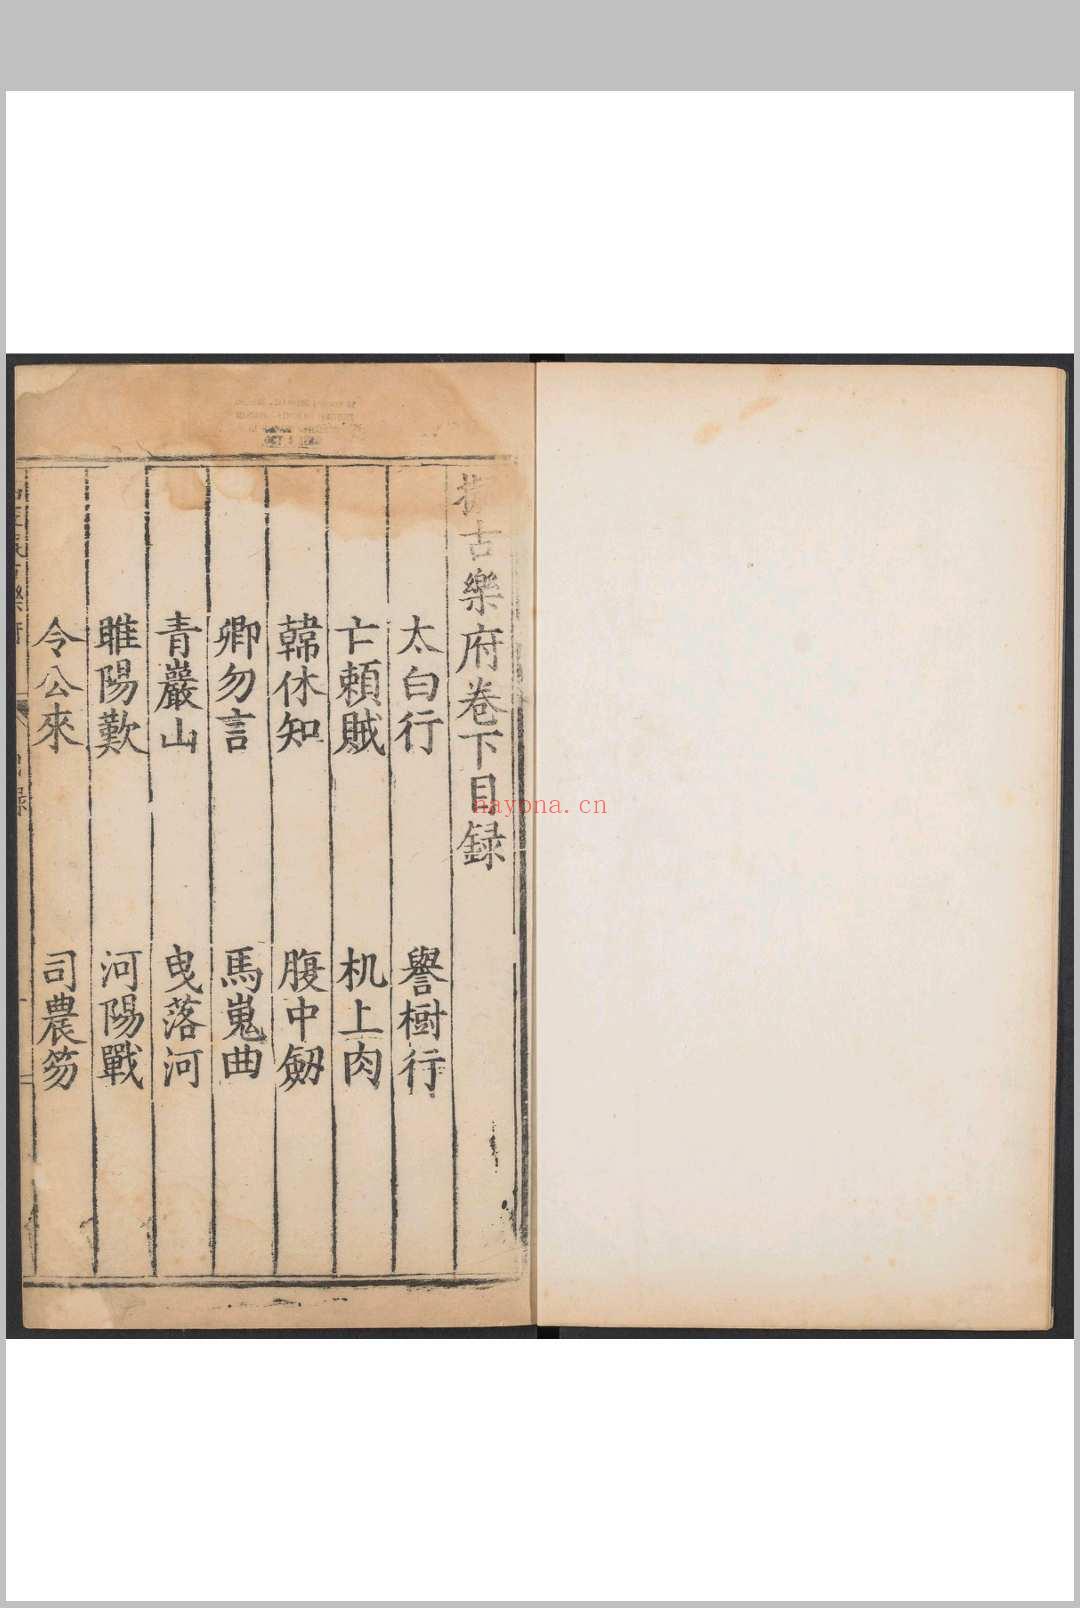 擬古樂府卷下目録
太白行 譽樹行
亡頼賊 机上肉
韓休知 腹中劒
卿勿言 馬嵬曲
青巖山 曵落河
睢陽歎 河陽戰
令公來 司農笏
nayona.cn